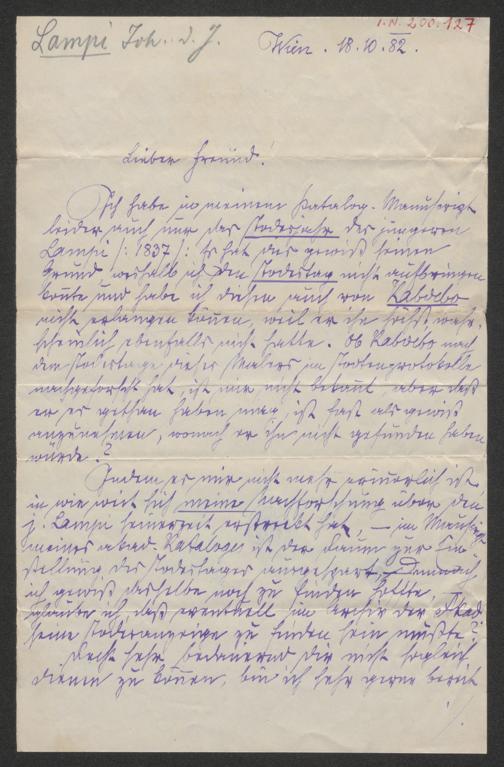 I.N. 200.127
Lampi Joh. d. J.
Wien. 18.10.82.
Lieber Freund!
Ich habe in meinem Katalog-Manuscript
leider auch nur das Todesjahr des jüngeren
Lampi /: 1837 :/ Es hat das gewiß seinen
Grund weshalb ich den Todestag nicht aufbringen
konnte und habe ich diesen auch von Kabdebo
nicht erlangen können, weil er ihn höchst wahr-
scheinlich ebenfalls nicht hatte. Ob Kabdebo nach
dem Todestage dieses Malers im Todtenprotokolle
nachgeforscht hat, ist mir nicht bekannt, aber daß
er es gethan haben mag, ist fast als gewiß
anzunehmen, wonach er ihn nicht gefunden haben
würde.?
Indem es mir nicht mehr erinnerlich ist
in wie weit sich meine Nachforschung über den
j. Lampi seinerzeit erstreckt hat, – im Manuscript
meines akad. Kataloges ist der Raum zur Ein-
stellung des Todestages ausgespart – demnach
ich gewiß denselben noch zu finden hoffte,
glaube ich, daß eventuell im Archiv der Akad.
seine Todesanzeige zu finden sein müßte.?
Recht sehr bedauernd Dir nicht sogleich
dienen zu können, bin ich sehr gerne bereit